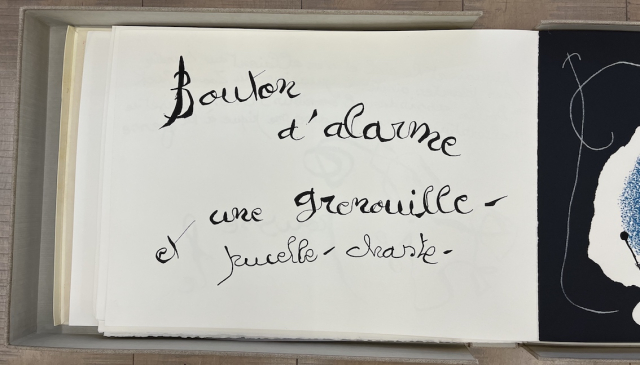 Bouton
d'alarme
une grenouille-
et pucelle-chaste-